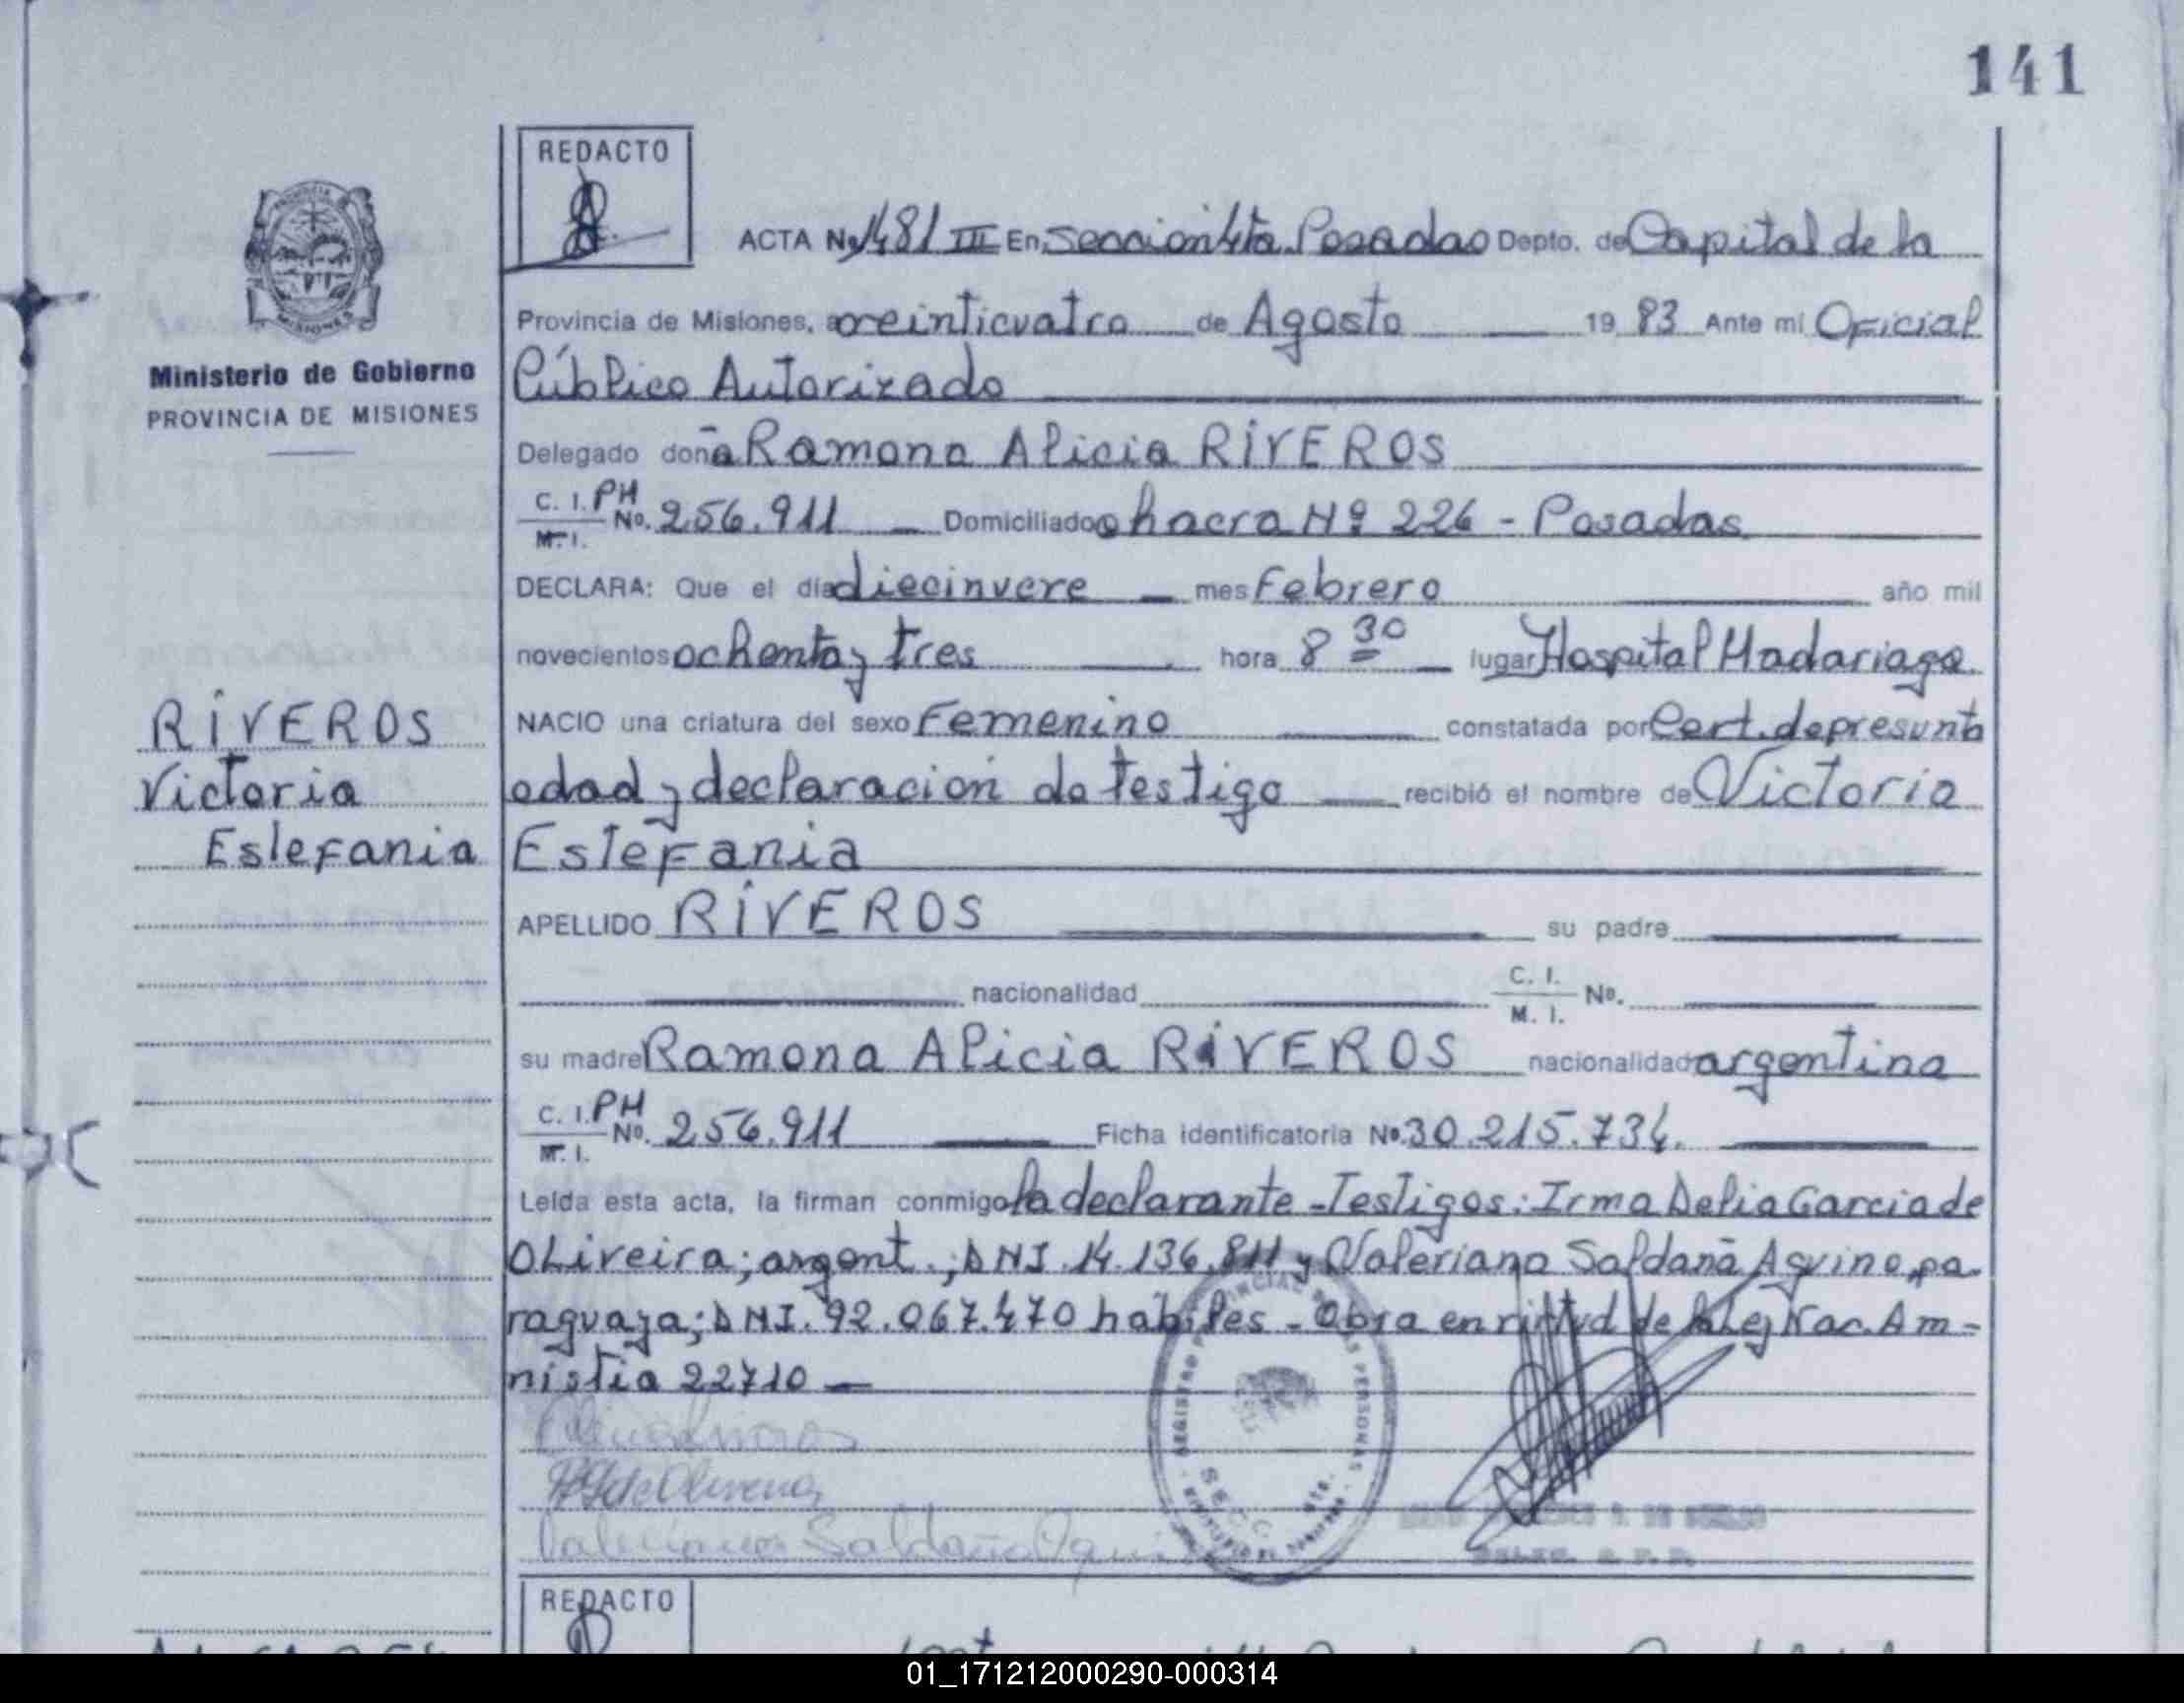 141
REDACTO
ACTA No 1481 III En Sección 4ta. Posadas Depto. de Capital de la
Provincia de Misiones, a veinticuatro de Agosto 19 83 Ante mi Oficial
Ministerio de Gobierno
PROVINCIA DE MISIONES
Público Autorizado
Delegado doña Ramona Alicia RIVEROS
C. I. PH No. 256.911 Domiciliado chacra Nº 226 - Posadas
M. I.
DECLARA: Que el día diecinueve mes Febrero año mil
novecientos ochenta y tres hora 8 30 lugar Hospital Madariaga
NACIO una criatura del sexo Femenino constatada por Cert. de presunta
edad y declaración de testigo recibió el nombre de Victoria
Estefania
RIVEROS
Victoria
Estefania
APELLIDO RIVEROS su padre
nacionalidad C. I. No.
M. I.
su madre Ramona Alicia RIVEROS nacionalidad argentina
C. I. PH No. 256.911 Ficha identificatoria No. 30.215.734.
M. I.
Leída esta acta, la firman conmigo la declarante - Testigos: Irma Delia Garcia de
OLiveira; argent.; DNI. 14.136.811 y Valeriana Saldaña Aquino, pa
raguaya; DNI. 92.067.470 habiles - Obra en virtud de la Ley Nac. Am-
nistia 22710 -
Valeriana Saldaña
REDACTO
01_171212000290-000314